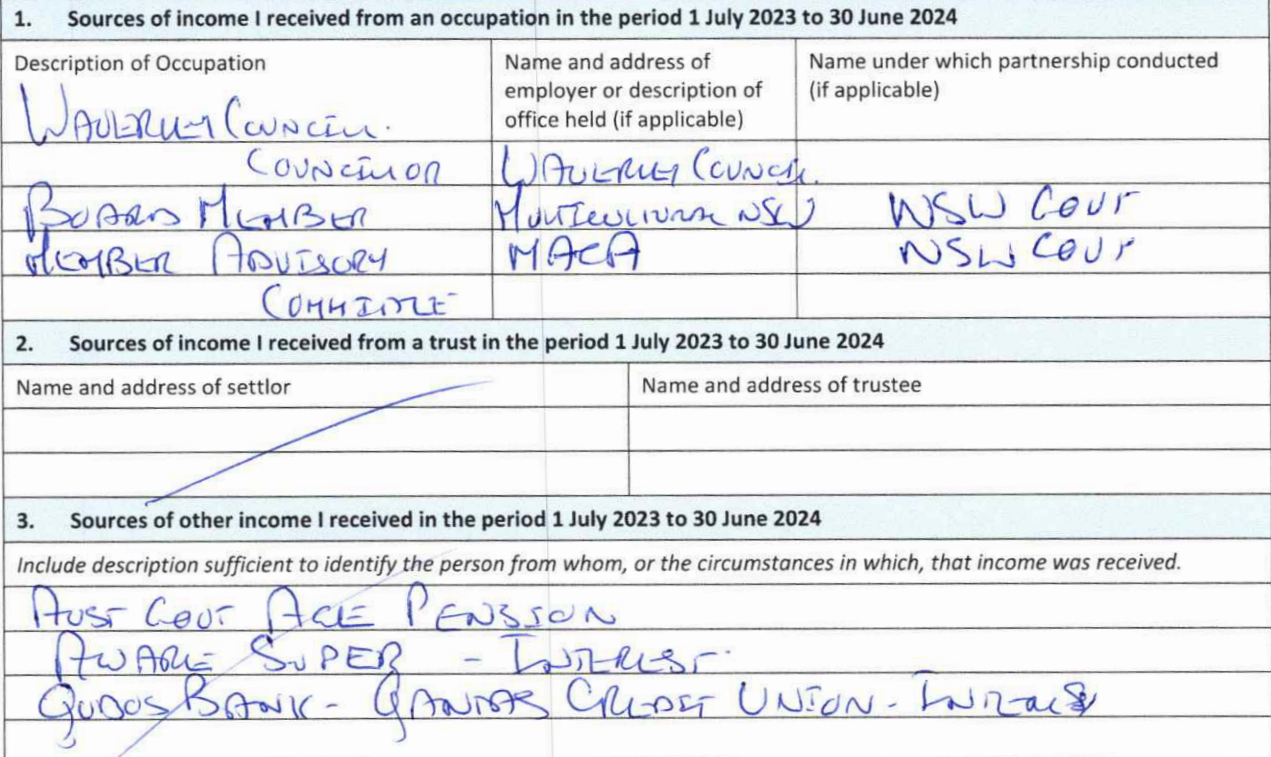 1. Sources of income I received from an occupation in the period 1 July 2023 to 30 June 2024
Description of Occupation
Name and address of
employer or description of
office held (if applicable)
Name under which partnership conducted
(if applicable)
WAVERLEY COUNCIL.
COUNCILLOR WAVERLEY COUNCIL.
BOARD MEMBER MULTICULTURAL NSW NSW GOVT
MEMBER ADVISORY MACA NSW GOVT
COMMITTEE
2. Sources of income I received from a trust in the period 1 July 2023 to 30 June 2024
Name and address of settlor Name and address of trustee
3. Sources of other income I received in the period 1 July 2023 to 30 June 2024
Include description sufficient to identify the person from whom, or the circumstances in which, that income was received.
AUST GOVT AGE PENSION
AWARE SUPER - INTEREST.
QUDOS BANK - QANTAS CREDIT UNION - INTEREST